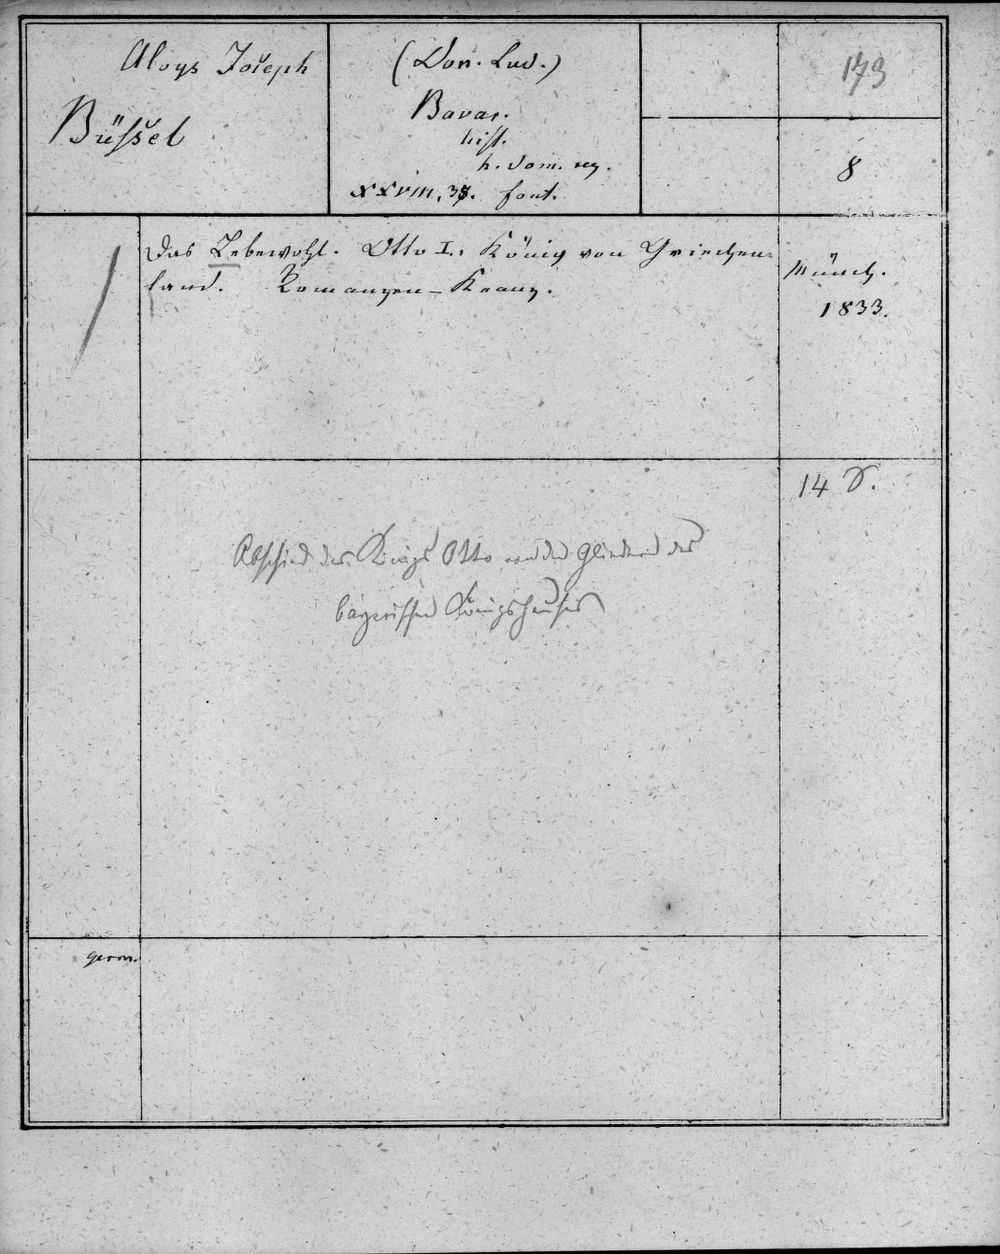 Aloys Joseph
Büssel
(Don. Lud.)
Bavar.
hist.
h. dom. reg.
XXVIII, 37. font.
173
8
Das Lebewohl. Otto I., König von Griechen-
land. Romanzen-Kranz.
Münch.
1833.
14 S.
Abschied des Königs Otto von den Gliedern des
bayerischen Königshauses
germ.